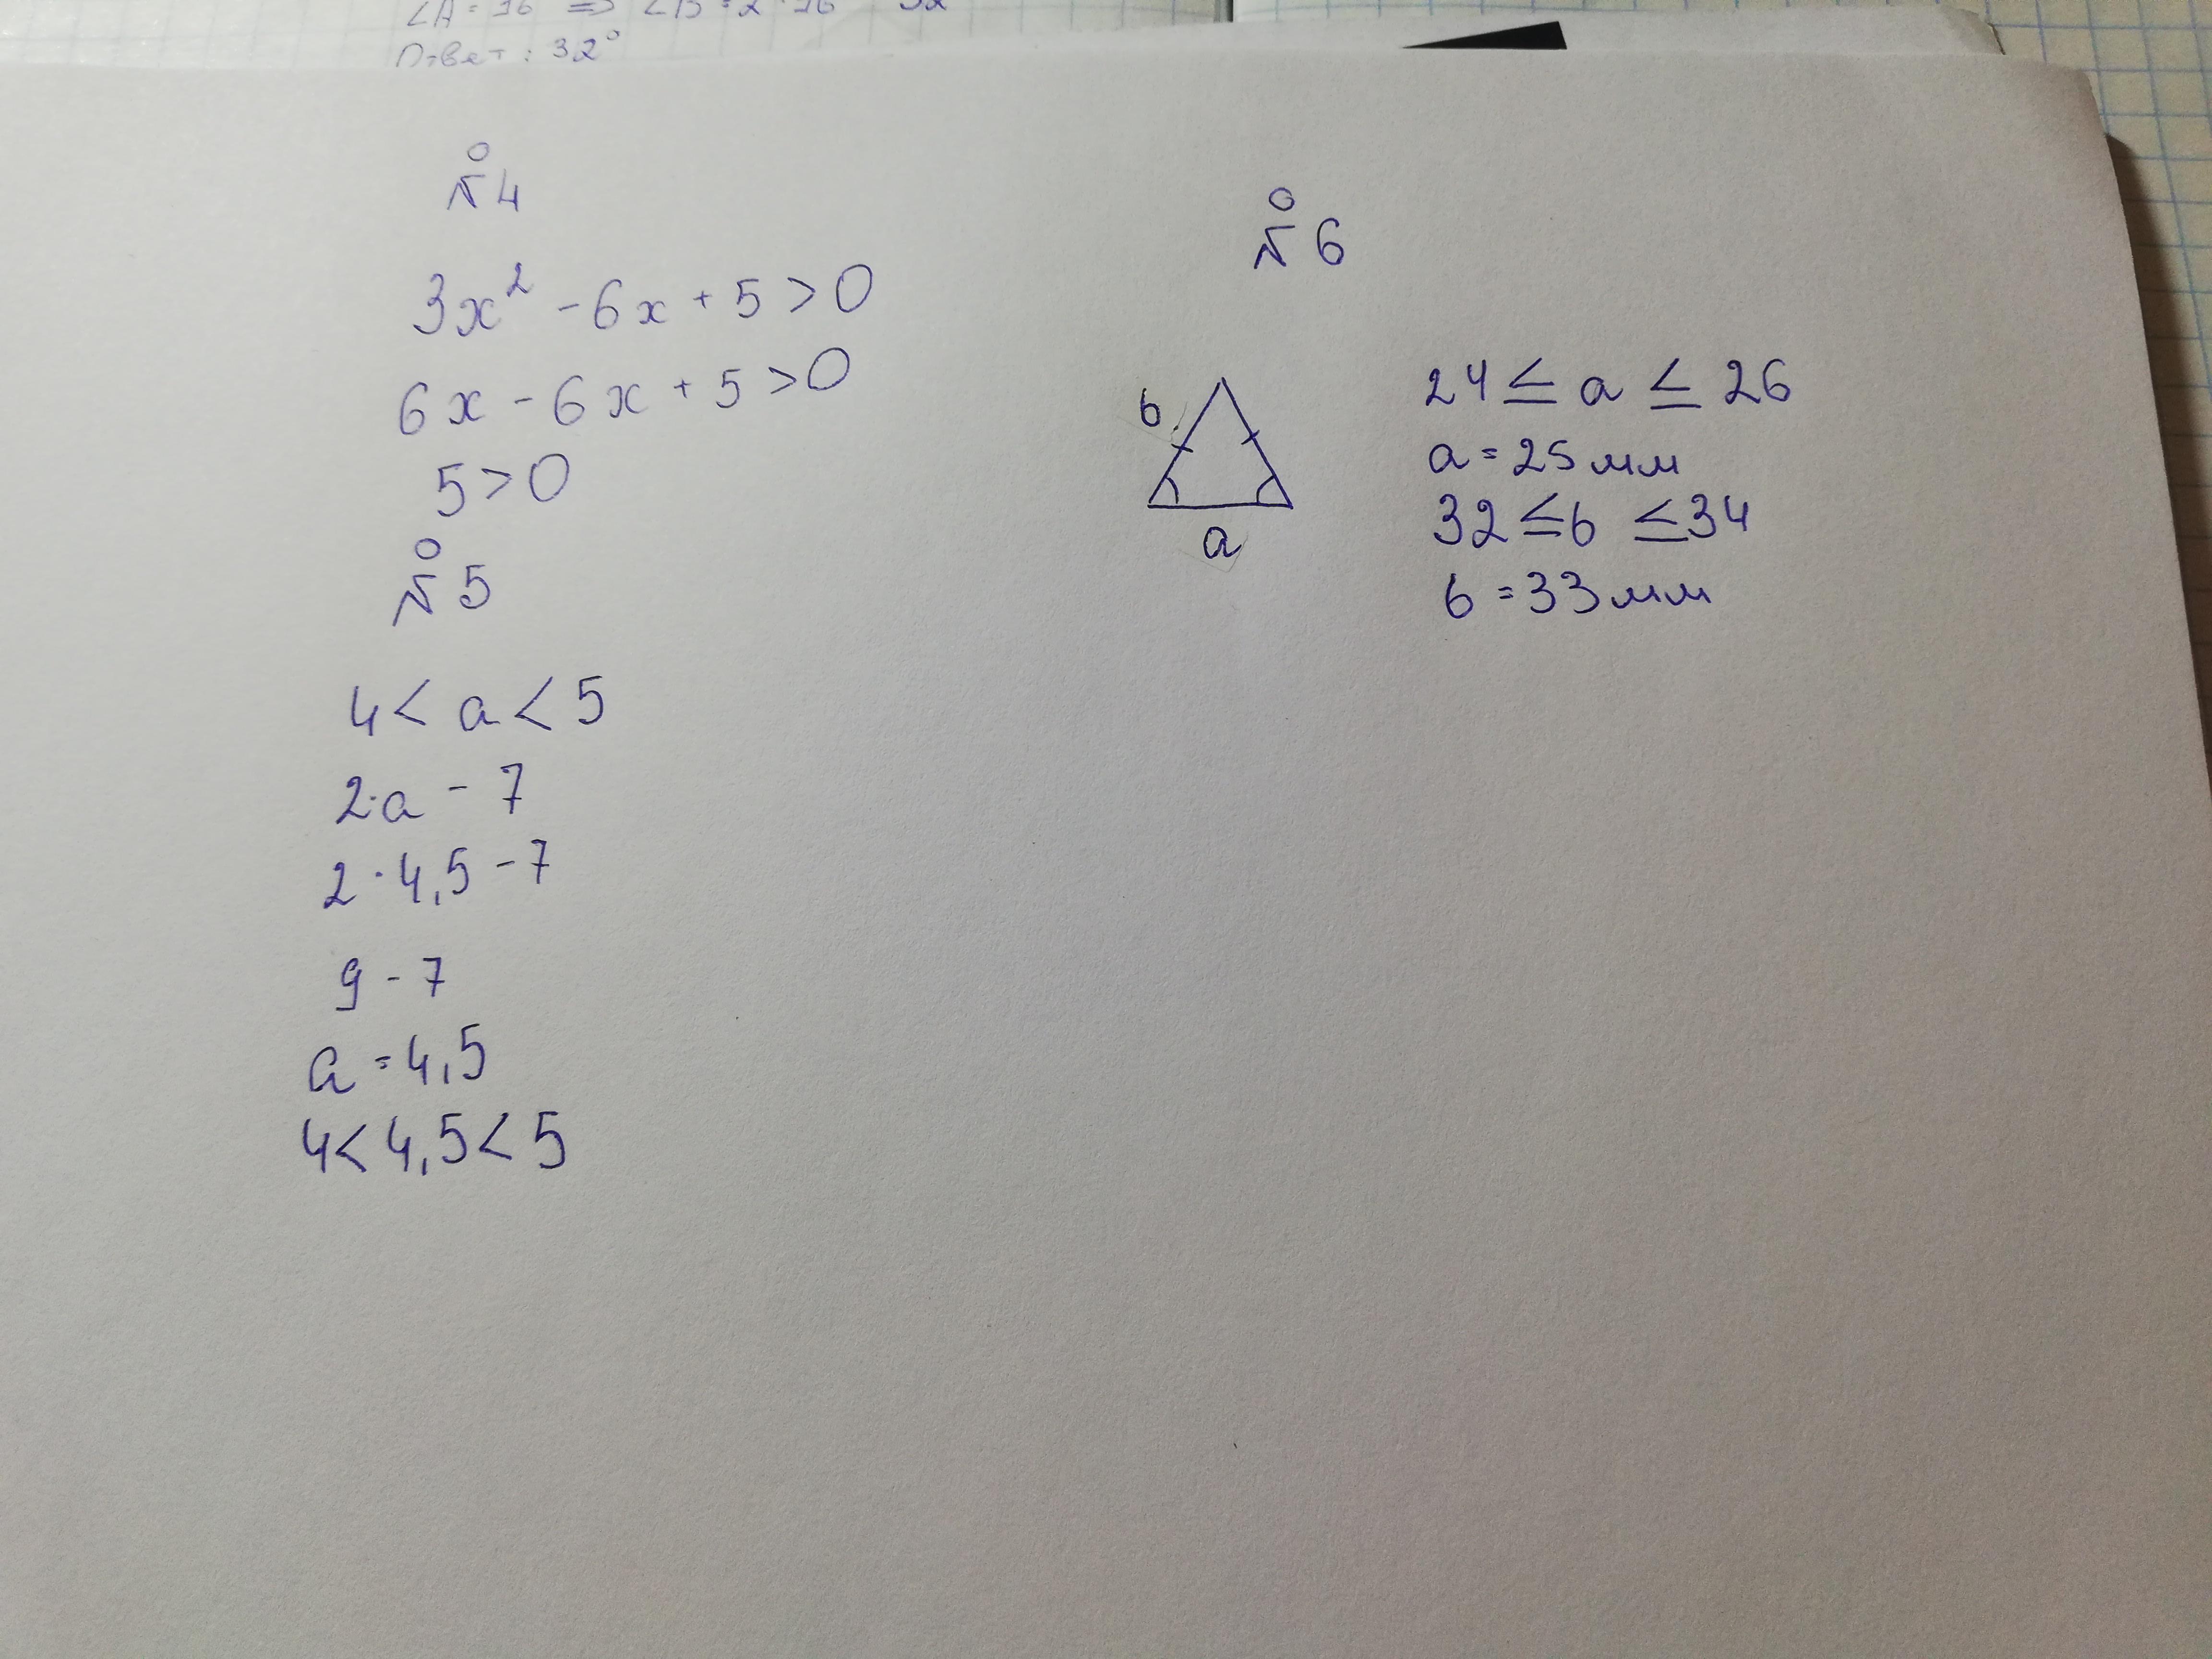 Ответ: 32°
№4
3x² - 6x + 5 > 0
6x - 6x + 5 > 0
5 > 0
№5
4 < a < 5
2·a - 7
2·4,5 - 7
9 - 7
a = 4,5
4 < 4,5 < 5
№6
b
a
24 ≤ a ≤ 26
a = 25мм
32 ≤ b ≤ 34
b = 33мм